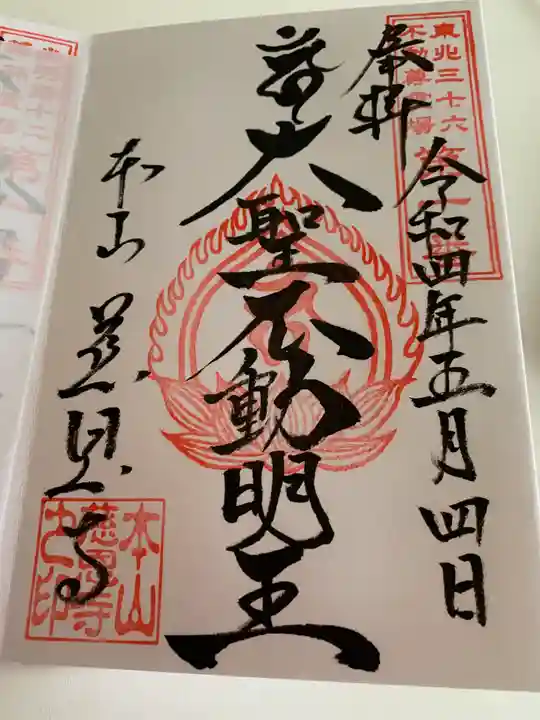 東北三十六
不動尊霊場
第一番
奉拝
令和四年五月四日
大聖不動明王
本山 慈恩寺
本山
慈恩寺
之印